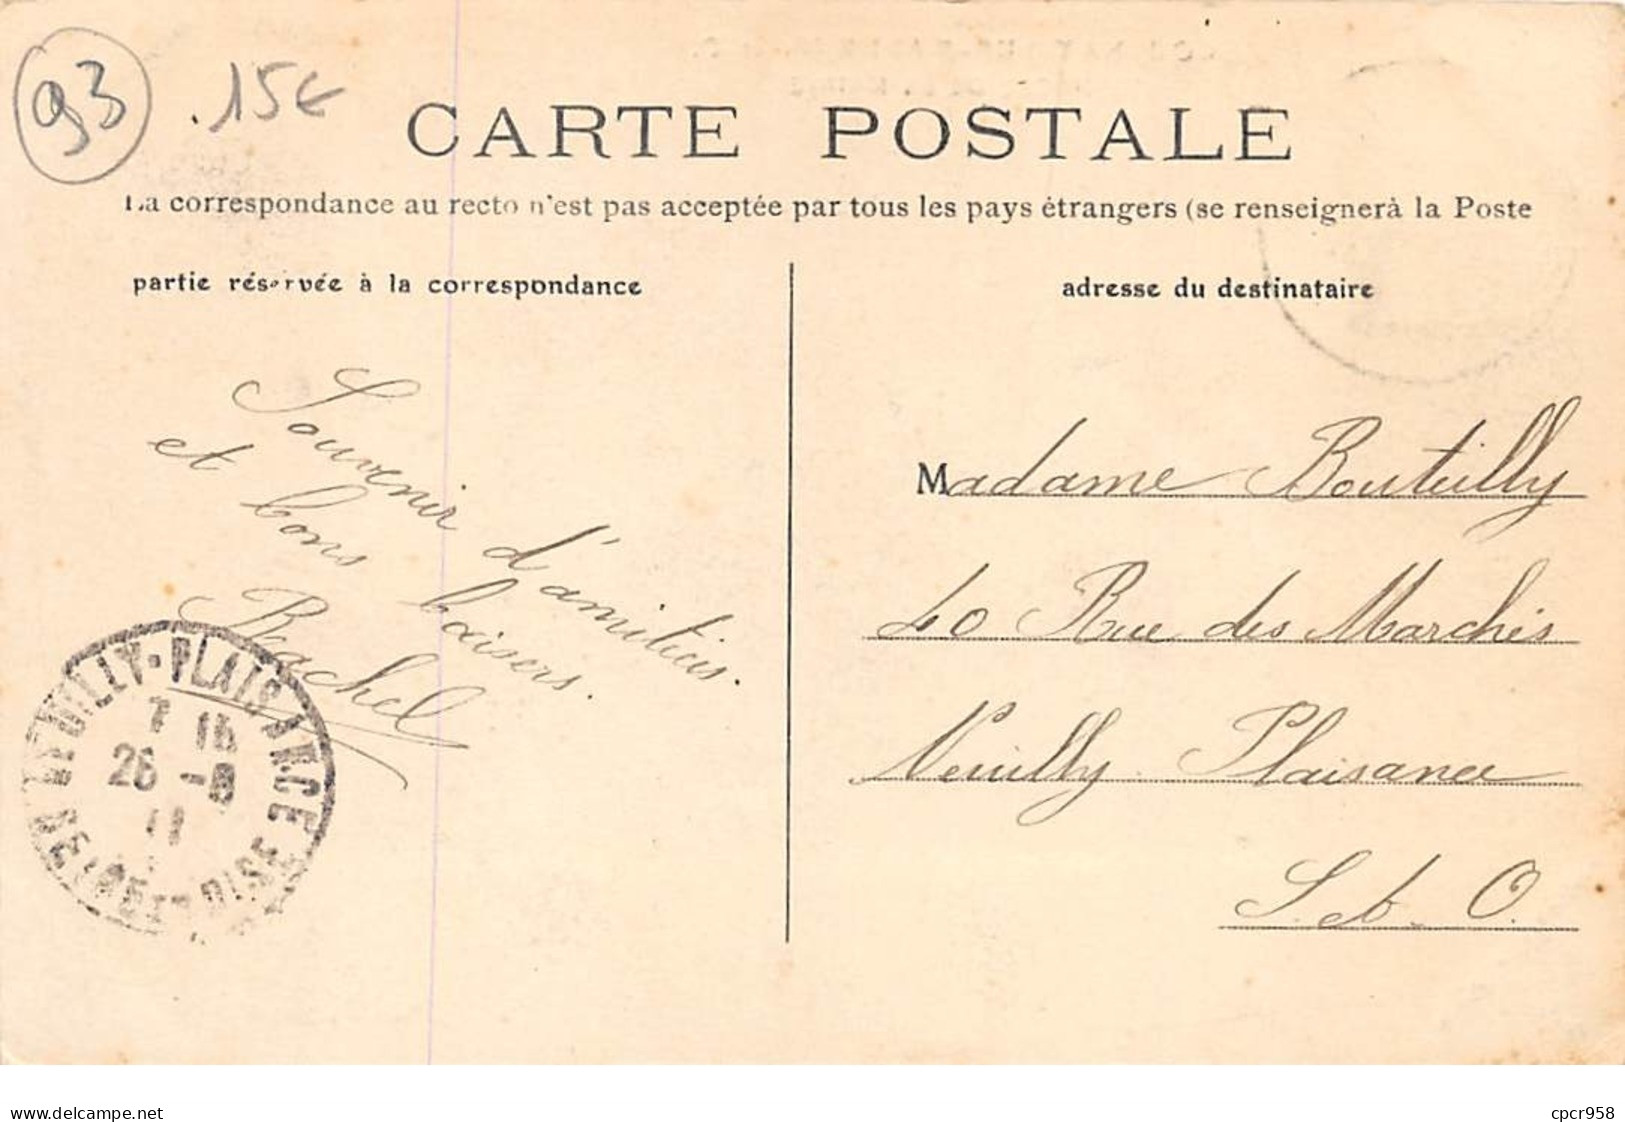 93
.15€
CARTE POSTALE
La correspondance au recto n'est pas acceptée par tous les pays étrangers (se renseignerà la Poste
partie réservée à la correspondance
adresse du destinataire
Souvenir d'amitiés.
et bons baisers.
Rachel
NEUILLY-PLAISANCE
7 15
26 -8
11
SEINE-ET-OISE
Madame Bouteilly
40 Rue des Marchés
Neuilly Plaisance
S. et O.
www.delcampe.net
cpcr958